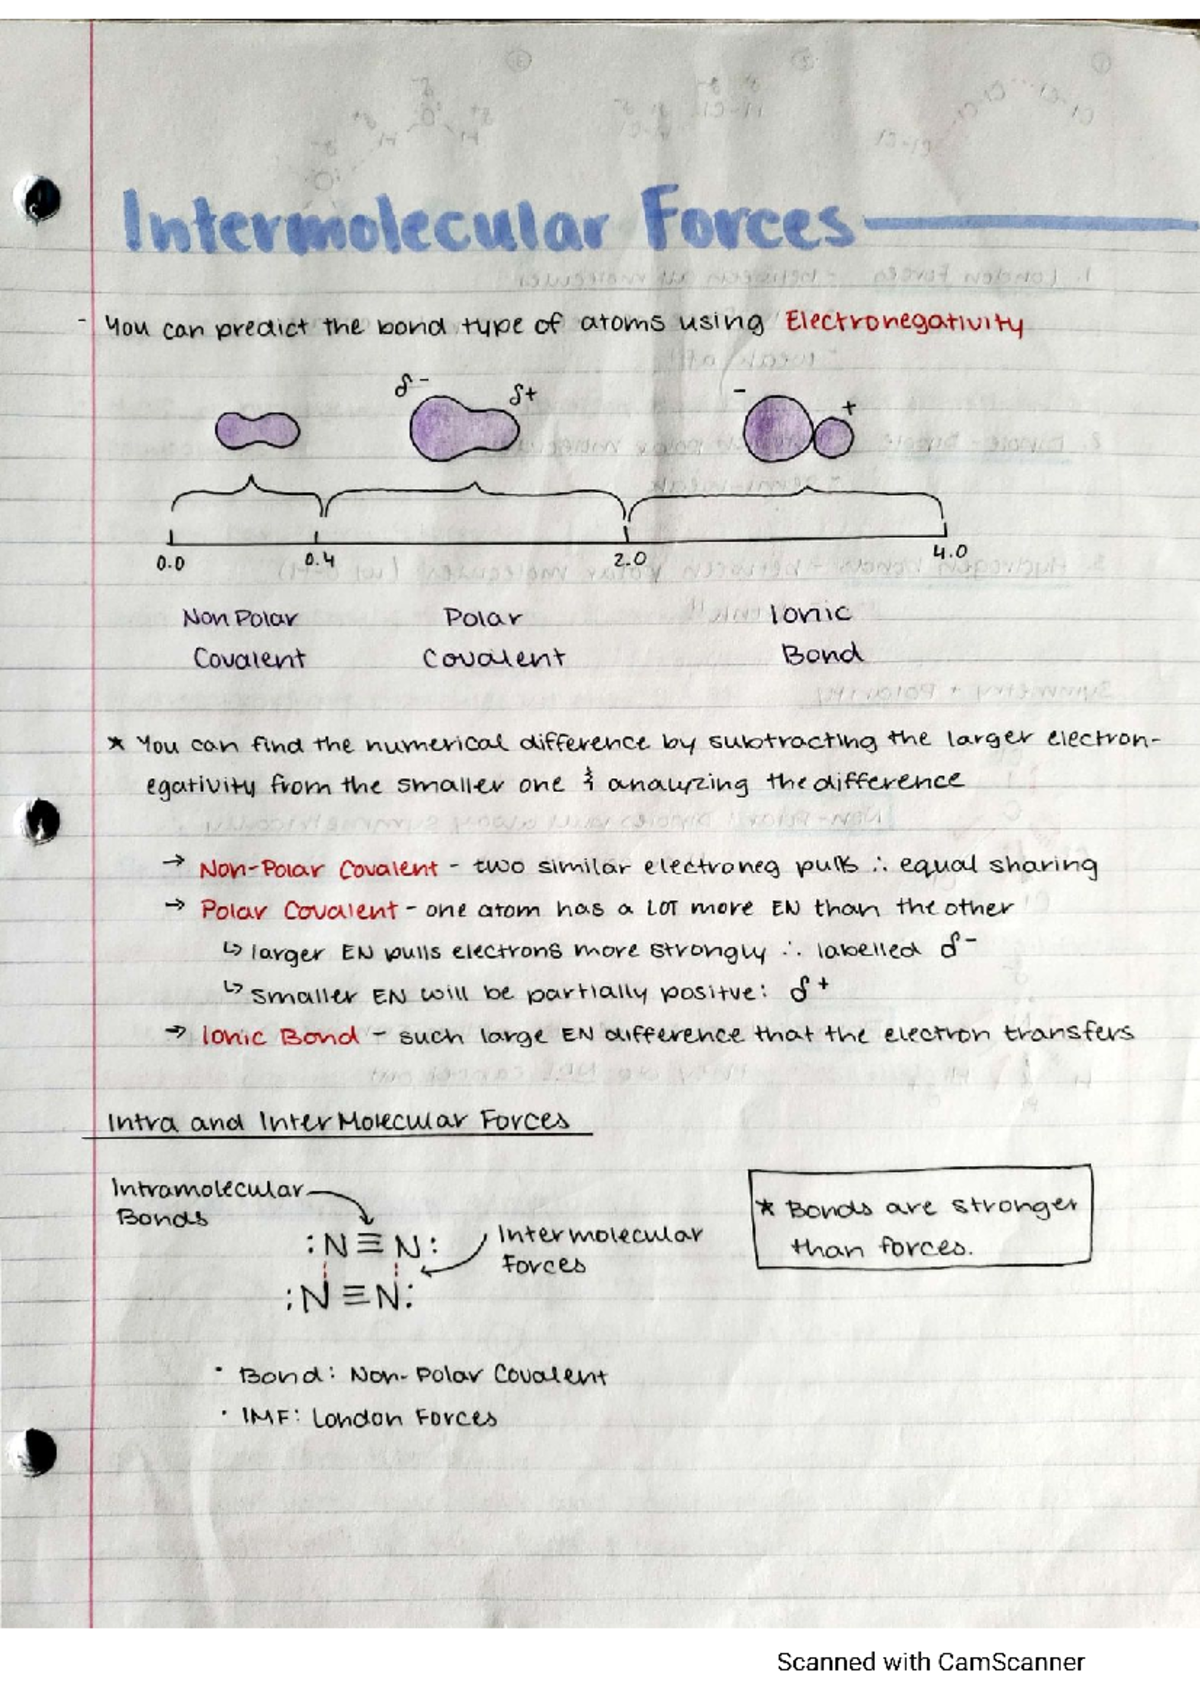 Intermolecular Forces
- You can predict the bond type of atoms using Electronegativity
δ- δ+ - +
0.0 0.4 2.0 4.0
Non Polar Polar Ionic
Covalent Covalent Bond
* You can find the numerical difference by subtracting the larger electron-
egativity from the smaller one & analyzing the difference
→ Non-Polar Covalent - two similar electroneg pulls ∴ equal sharing
→ Polar Covalent - one atom has a LOT more EN than the other
↳ larger EN pulls electrons more strongly ∴ labelled δ-
↳ smaller EN will be partially positve: δ+
→ Ionic Bond - such large EN difference that the electron transfers
Intra and InterMolecular Forces
Intramolecular
Bonds
:N≡N:
Intermolecular
Forces
:N≡N:
* Bonds are stronger
than forces.
• Bond: Non-Polar Covalent
• IMF: London Forces
Scanned with CamScanner